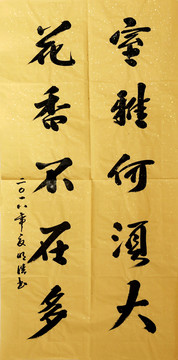 室雅何須大
花香不在多
二〇一八年夏明洪书